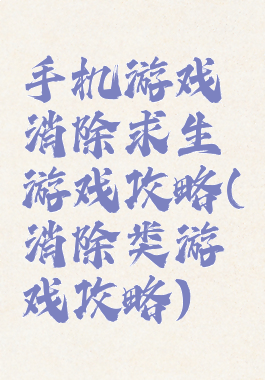 手机游戏
消除求生
游戏攻略(
消除类游
戏攻略)